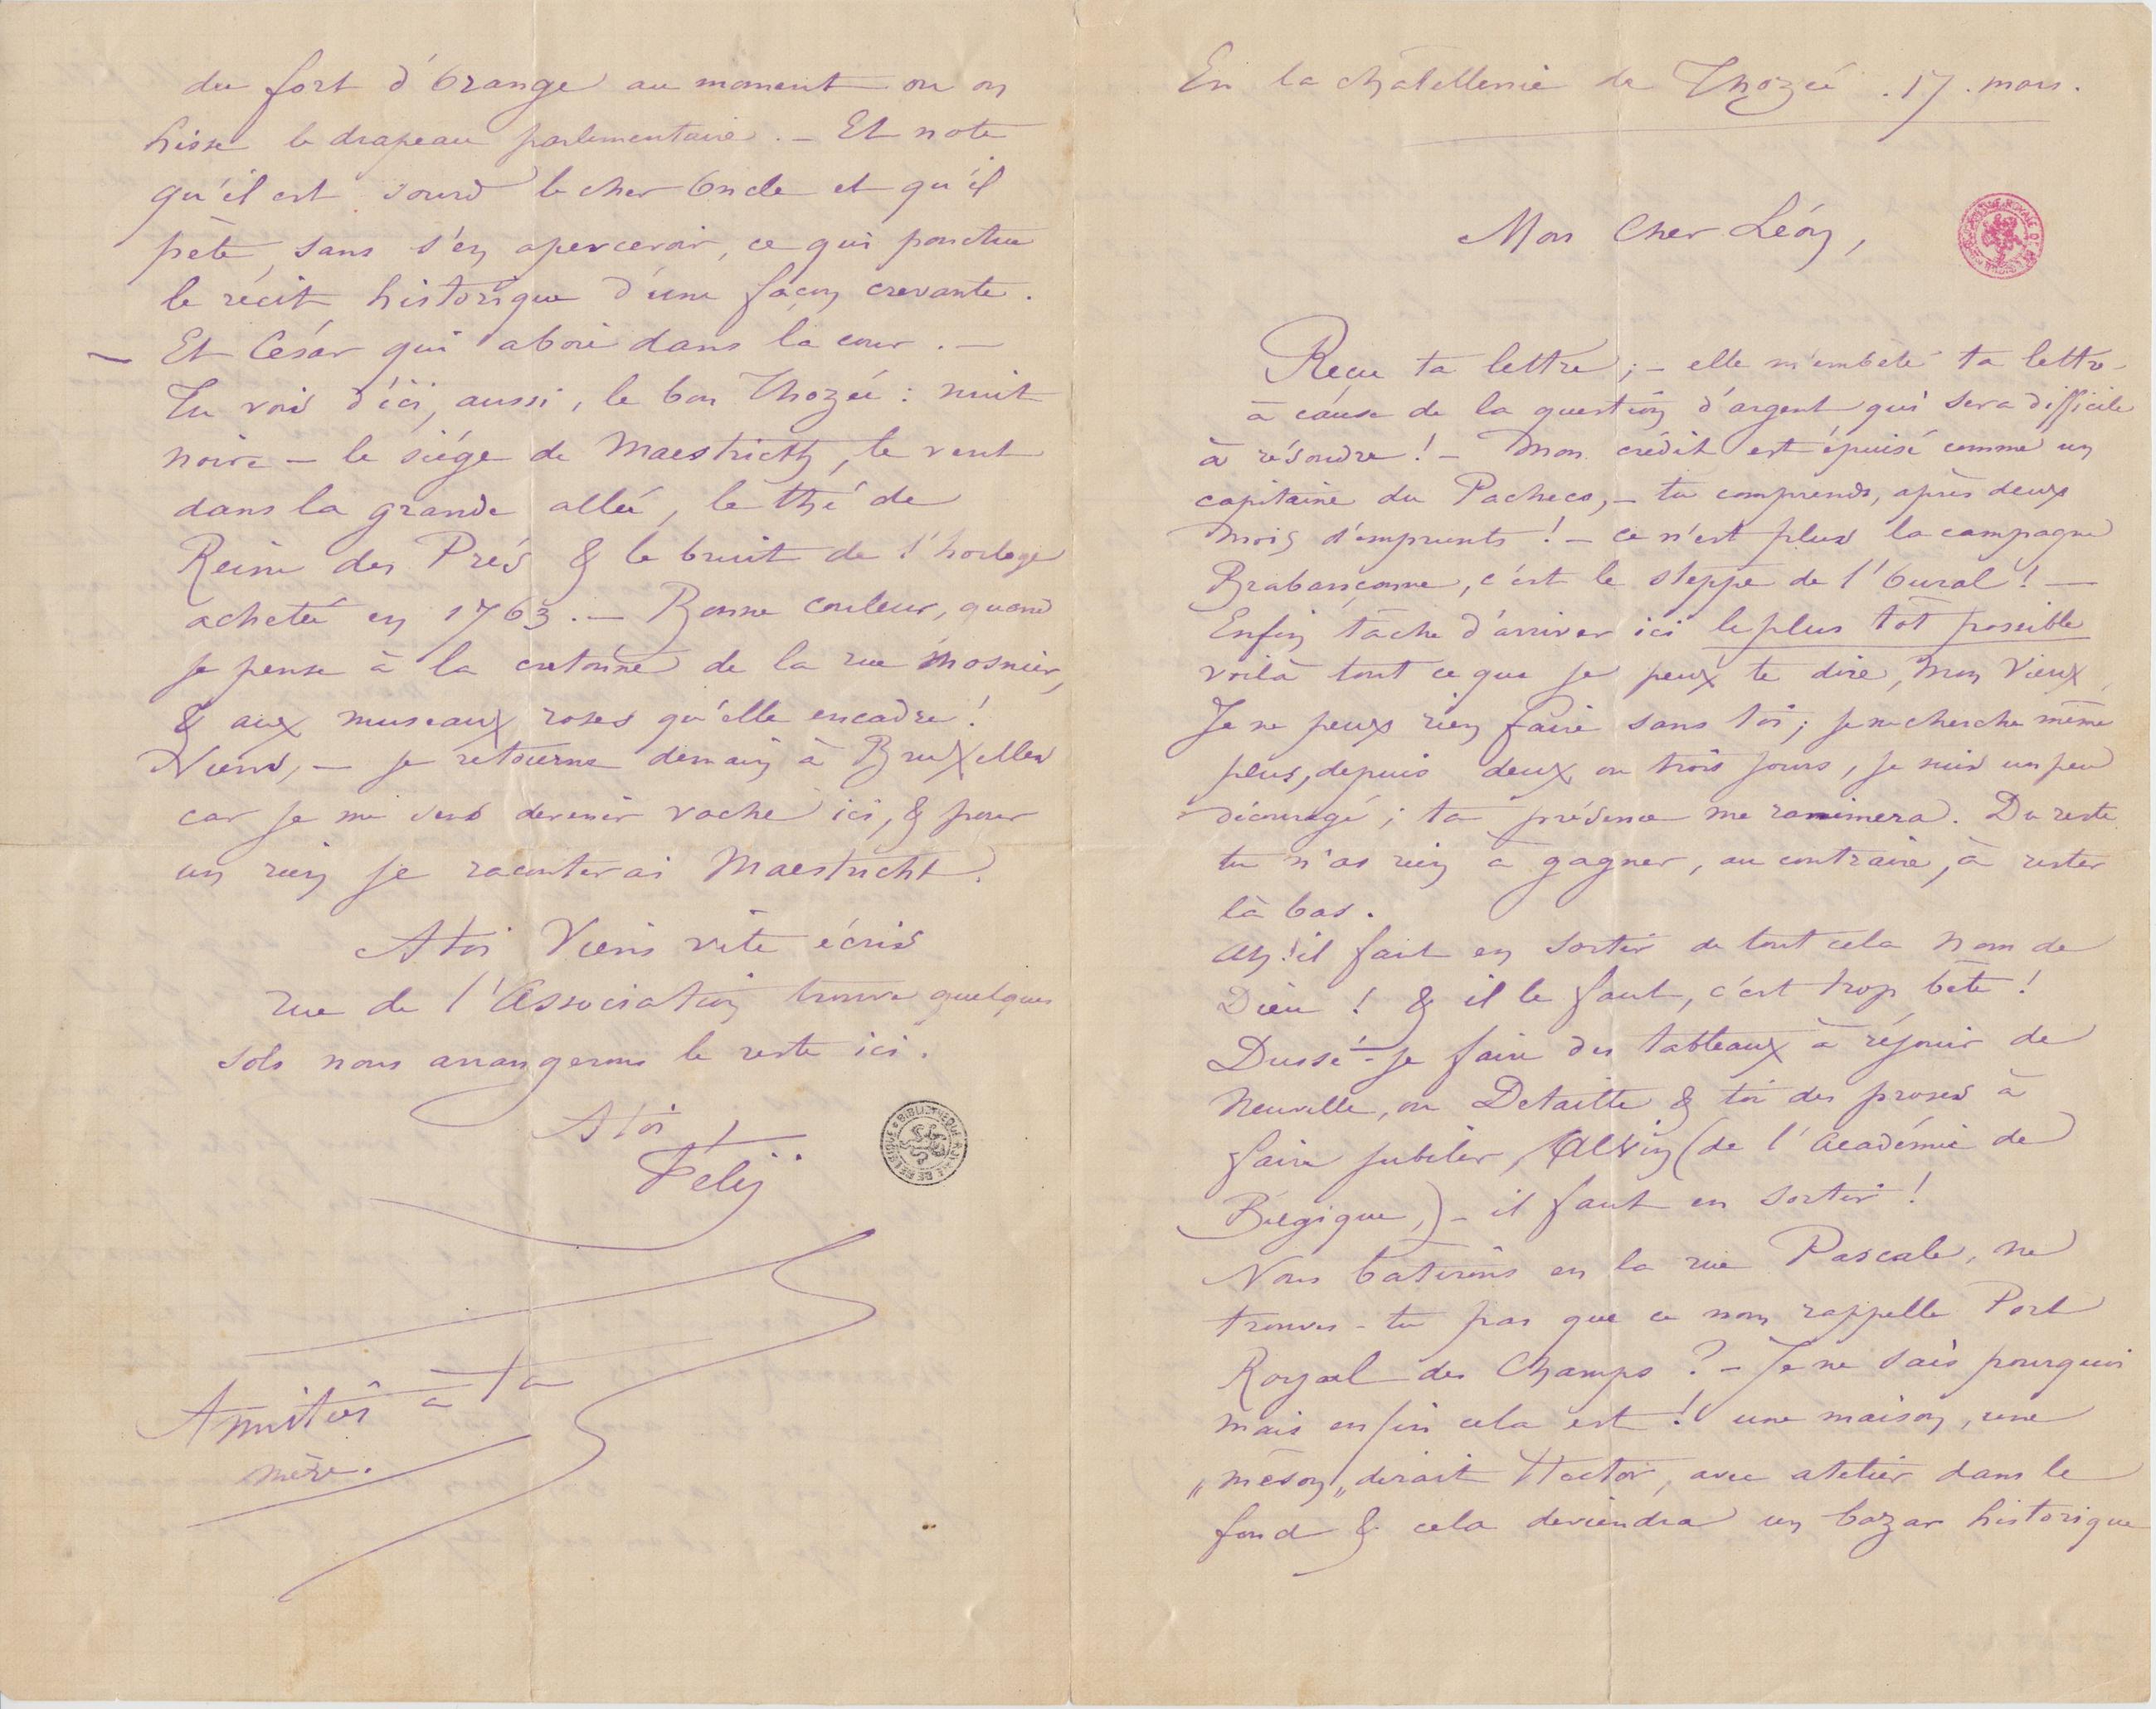 En la châtellenie de Thozée . 17 . mars .
Mon Cher Léon,
Reçu ta lettre ; – elle m'embête ta lettre
à cause de la question d'argent qui sera difficile
à résoudre ! – Mon crédit est épuisé comme un
capitaine du Pacheco, – tu comprends, après deux
mois d'emprunts ! – ce n'est plus la campagne
Brabançonne, c'est le steppe de l'Oural ! –
Enfin tâche d'arriver ici le plus tôt possible
voilà tout ce que je peux te dire, mon Vieux,
Je ne peux rien faire sans toi ; je ne cherche même
plus, depuis deux ou trois jours, je suis un peu
découragé ; ta présence me ranimera. Du reste
tu n'as rien à gagner, au contraire, à rester
là bas .
Ah ! il faut en sortir de tout cela nom de
Dieu ! & il le faut, c'est trop bête !
Dussé-je faire des tableaux à réjouir de
Neuville, ou Detaille & toi des proses à
faire jubiler, Alvin (de l'Académie de
Belgique,) – il faut en sortir !
Nous bâtirons en la rue Pascale, ne
trouves-tu pas que ce nom rappelle Port
Royal des Champs ? – Je ne sais pourquoi
mais enfin cela est ! une maison, une
„mèson„ dirait Hector, avec atelier dans le
fond & cela deviendra un bazar historique
du fort d'Orange au moment ou on
hisse le drapeau parlementaire . – Et note
qu'il est sourd le cher Oncle et qu'il
pète, sans s'en apercevoir, ce qui ponctue
le récit historique d'une façon crevante .
– Et César qui aboie dans la cour . –
Tu vois d'ici, aussi, le bon Thozée : nuit
noire – le siége de Maestricth, le vent
dans la grande allée, le thé de
Reine des Prés & le bruit de l'horloge
acheté en 1763 . – Bonne couleur, quand
je pense à la cretonne de la rue Mosnier,
& aux museaux roses qu'elle encadre !
Viens, – je retourne demain à Bruxelles
car je me sens devenir vache ici, & pour
un rien je raconterai Maestricht.
A toi Viens vite écris
rue de l'Association trouve quelques
sols nous arrangerons le reste ici .
A toi,
Fély
Amitiés à ta
mère .
BIBLIOTHEQUE ROYALE DE BELGIQUE